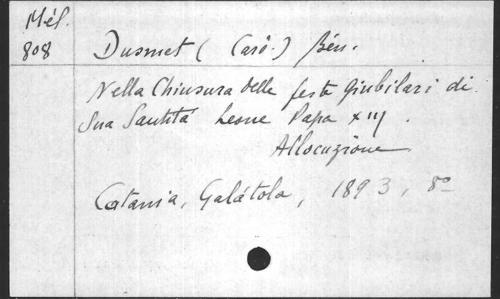 Mél.
808
Dusmet (Card.) Bén.
Nella Chiusura delle feste Giubilari di
Sua Santità Leone Papa XIII.
Allocuzione
Catania, Galátola, 1893, 8º